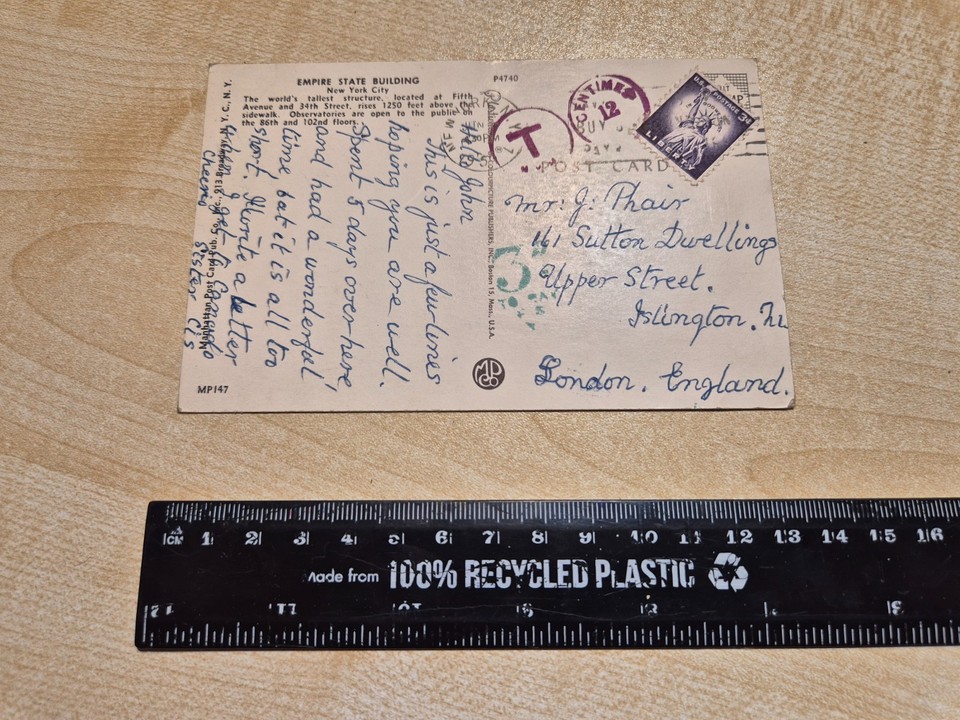 EMPIRE STATE BUILDING
New York City
The world's tallest structure, located at Fifth
Avenue and 34th Street, rises 1250 feet above the
sidewalk. Observatories are open to the public on
the 86th and 102nd floors.
P4740
Hello John
This is just a few lines
hoping you are well.
Spent 5 days over here
and had a wonderful
time but it is all too
short, I'll write a better
when I get to Canada
Cheerio
Sister Cis
Manhattan Post Card Pub. Co., Inc., 913 Broadway, N. Y. C., N. Y.
MP147
COLOURPICTURE PUBLISHERS, INC., Boston 15, Mass., U.S.A.
MPCo
T
CENTIMES
12
BUY
U.S. POSTAGE 3¢
LIBERTY
POST CARD
5D
Mr: J: Phair
161 Sutton Dwellings
Upper Street.
Islington. N1
London. England.
CM 1 2 3 4 5 6 7 8 9 10 11 12 13 14 15 16
Made from 100% RECYCLED PLASTIC